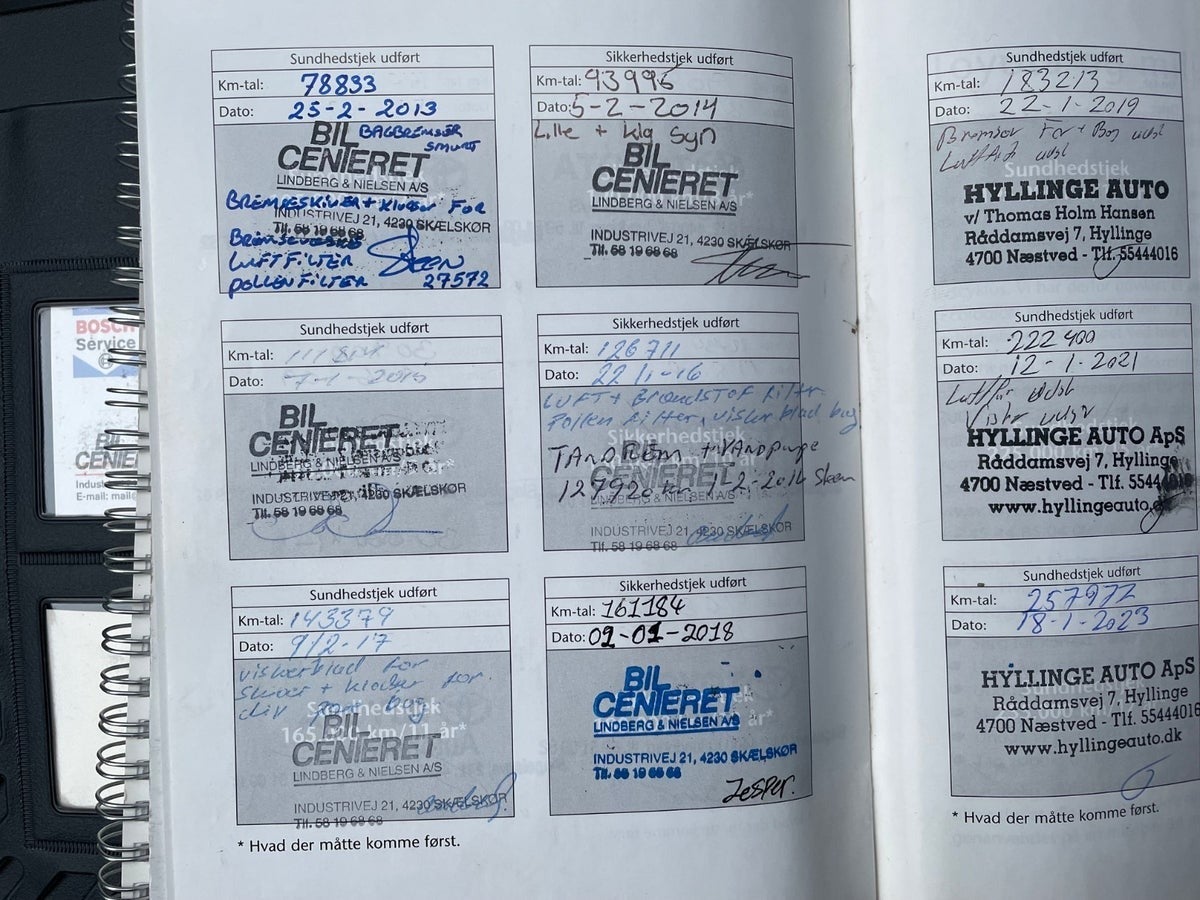 Sundhedstjek udført
Km-tal: 78833
Dato: 25-2-2013
BIL BAGBREMSER
SMURT
CENTERET
LINDBERG & NIELSEN A/S
BREMSESKIVER + KLODSER FOR
INDUSTRIVEJ 21, 4230 SKÆLSKØR
Tlf. 58 19 68 68
LUFTFILTER Steen
POLLENFILTER 27572
Sikkerhedstjek udført
Km-tal: 93996
Dato: 5-2-2014
Lille + klg syn
BIL
CENTERET
LINDBERG & NIELSEN A/S
INDUSTRIVEJ 21, 4230 SKÆLSKØR
Tlf. 58 19 68 68
Sundhedstjek udført
Km-tal:
Dato: 7-1-2015
BIL
CENTERET
LINDBERG & NIELSEN A/S
INDUSTRIVEJ 21, 4230 SKÆLSKØR
Tlf. 58 19 68 68
Sikkerhedstjek udført
Km-tal: 126711
Dato: 22/1-16
LUFT + Brændstof filter
Pollen filter, visker blad bag
Sikkerhedstjek
TANDREM + VANDpumpe
CENTERET
LINDBERG & NIELSEN A/S
INDUSTRIVEJ 21, 4230 SKÆLSKØR
Tlf. 58 19 68 68
Sundhedstjek udført
Km-tal: 143379
Dato: 9/2-17
viskerblad for
skiver + klodser for
Sundhedstjek
BIL
165.000 km/11 år*
CENTERET
LINDBERG & NIELSEN A/S
INDUSTRIVEJ 21, 4230 SKÆLSKØR
Tlf. 58 19 68 68
Sikkerhedstjek udført
Km-tal: 161184
Dato: 09-01-2018
BIL
CENTERET
LINDBERG & NIELSEN A/S
INDUSTRIVEJ 21, 4230 SKÆLSKØR
Tlf. 58 19 68 68
Jesper.
* Hvad der måtte komme først.
Sundhedstjek udført
Km-tal: 183213
Dato: 22-1-2019
Bremser For + Bag udsk
Luftfilt udsk
Sundhedstjek
HYLLINGE AUTO
v/ Thomas Holm Hansen
Råddamsvej 7, Hyllinge
4700 Næstved - Tlf. 55444016
Sundhedstjek udført
Km-tal: 222 400
Dato: 12-1-2021
HYLLINGE AUTO ApS
Råddamsvej 7, Hyllinge
4700 Næstved - Tlf. 55444016
www.hyllingeauto.dk
Sundhedstjek udført
Km-tal: 257972
Dato: 18-1-2023
HYLLINGE AUTO ApS
Råddamsvej 7, Hyllinge
4700 Næstved - Tlf. 55444016
www.hyllingeauto.dk
* Hvad der måtte komme først.
BOSCH
Service